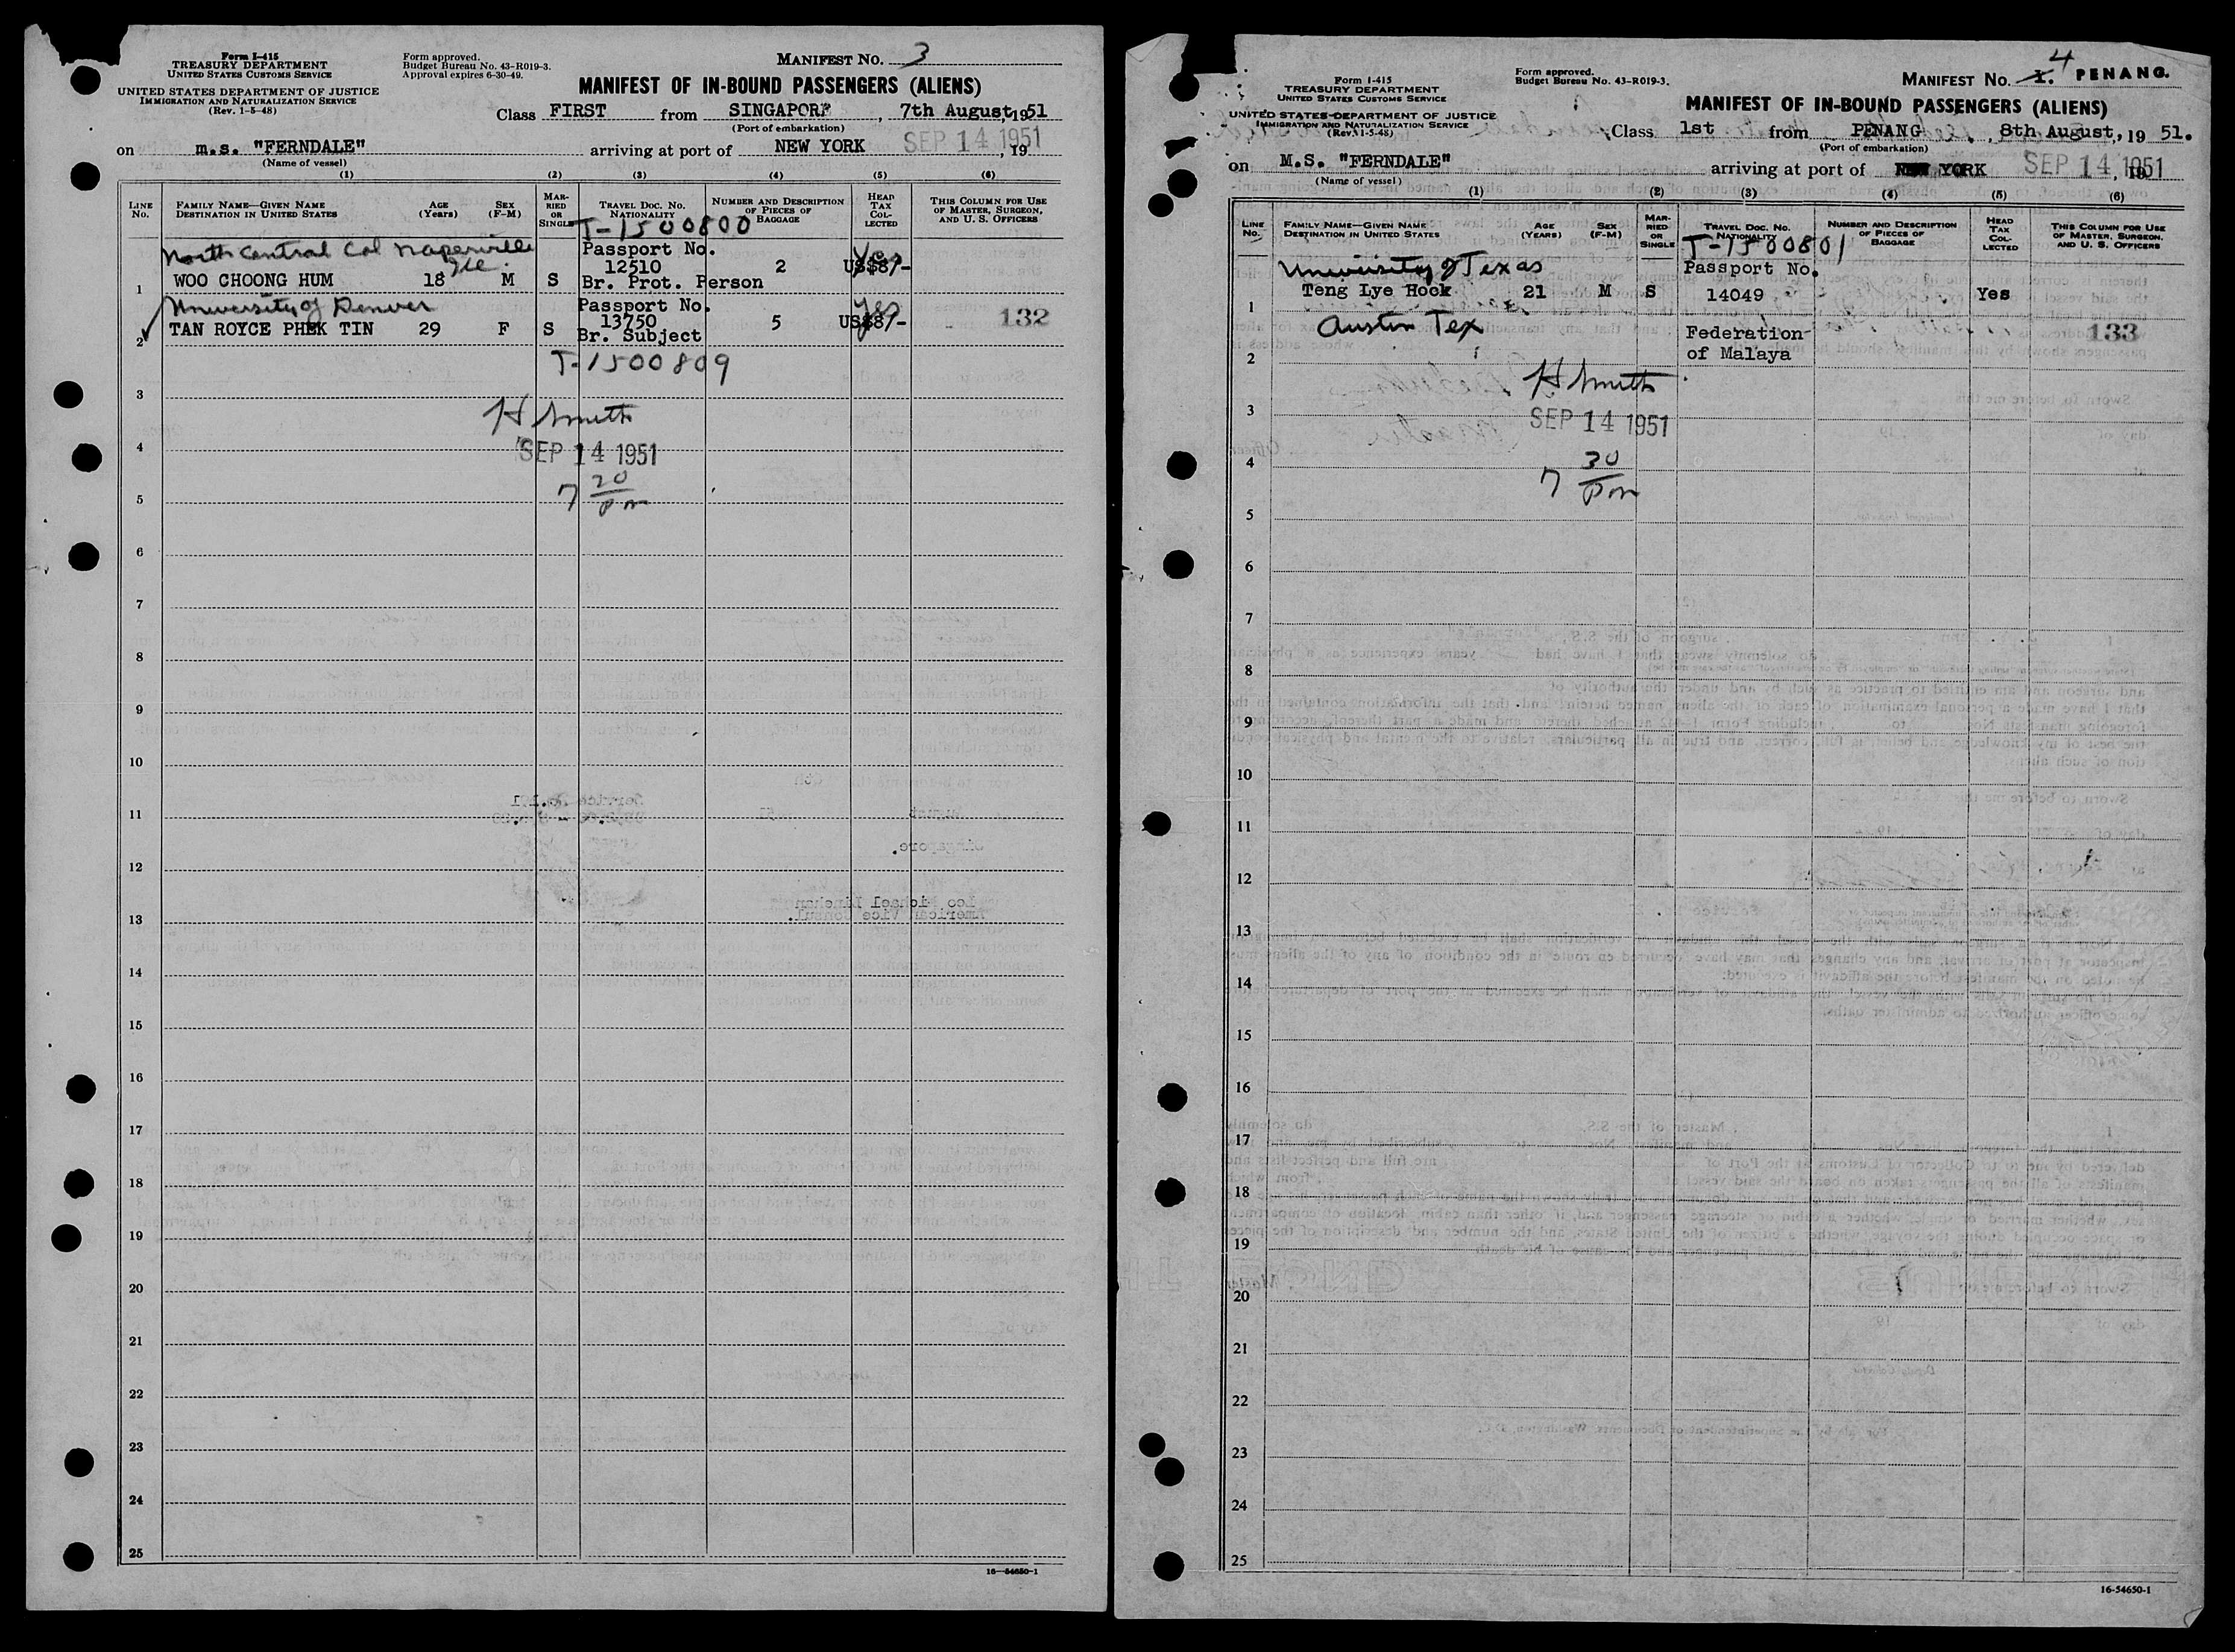 Form I-415
TREASURY DEPARTMENT
UNITED STATES CUSTOMS SERVICE
UNITED STATES DEPARTMENT OF JUSTICE
IMMIGRATION AND NATURALIZATION SERVICE
(Rev. 1-5-48)
Form approved.
Budget Bureau No. 43-R019-3.
Approval expires 6-30-49.
MANIFEST NO. 3
MANIFEST OF IN-BOUND PASSENGERS (ALIENS)
Class FIRST from SINGAPORE, 7th August, 1951
(Port of embarkation)
on m.s. "FERNDALE" arriving at port of NEW YORK SEP 14 1951, 19
(Name of vessel)
(1) (2) (3) (4) (5) (6)
LINE No. FAMILY NAME—GIVEN NAME DESTINATION IN UNITED STATES AGE (Years) SEX (F-M) MARRIED OR SINGLE TRAVEL DOC. NO. NATIONALITY NUMBER AND DESCRIPTION OF PIECES OF BAGGAGE HEAD TAX COLLECTED THIS COLUMN FOR USE OF MASTER, SURGEON, AND U. S. OFFICERS
T-1500800
North Central Col Naperville Ill. Passport No. Yes
1 WOO CHOONG HUM 18 M S 12510 Br. Prot. Person 2 US$8/-
University of Denver Passport No. Yes
2 TAN ROYCE PHEK TIN 29 F S 13750 Br. Subject 5 US$8/- 132
T-1500809
3
H Smith
4 SEP 14 1951
5 7 20 pm
6
7
8
9
10
11
12
13
14
15
16
17
18
19
20
21
22
23
24
25
16—54650-1
Form I-415
TREASURY DEPARTMENT
UNITED STATES CUSTOMS SERVICE
UNITED STATES DEPARTMENT OF JUSTICE
IMMIGRATION AND NATURALIZATION SERVICE
(Rev. 1-5-48)
Form approved.
Budget Bureau No. 43-R019-3.
MANIFEST NO. 1. 4 PENANG.
MANIFEST OF IN-BOUND PASSENGERS (ALIENS)
Class 1st from PENANG, 8th August, 1951.
(Port of embarkation)
on M.S. "FERNDALE" arriving at port of NEW YORK SEP 14 1951, 19
(Name of vessel)
(1) (2) (3) (4) (5) (6)
LINE No. FAMILY NAME—GIVEN NAME DESTINATION IN UNITED STATES AGE (YEARS) SEX (F-M) MARRIED OR SINGLE TRAVEL DOC. NO. NATIONALITY NUMBER AND DESCRIPTION OF PIECES OF BAGGAGE HEAD TAX COLLECTED THIS COLUMN FOR USE OF MASTER, SURGEON, AND U. S. OFFICERS
T-1500801
University of Texas Passport No.
1 Teng Lye Hock 21 M S 14049 Yes
Austin Tex Federation 133
2 of Malaya
H Smith
3 SEP 14 1951
4 7 30 pm
5
6
7
8
9
10
11
12
13
14
15
16
17
18
19
20
21
22
23
24
25
16-54650-1